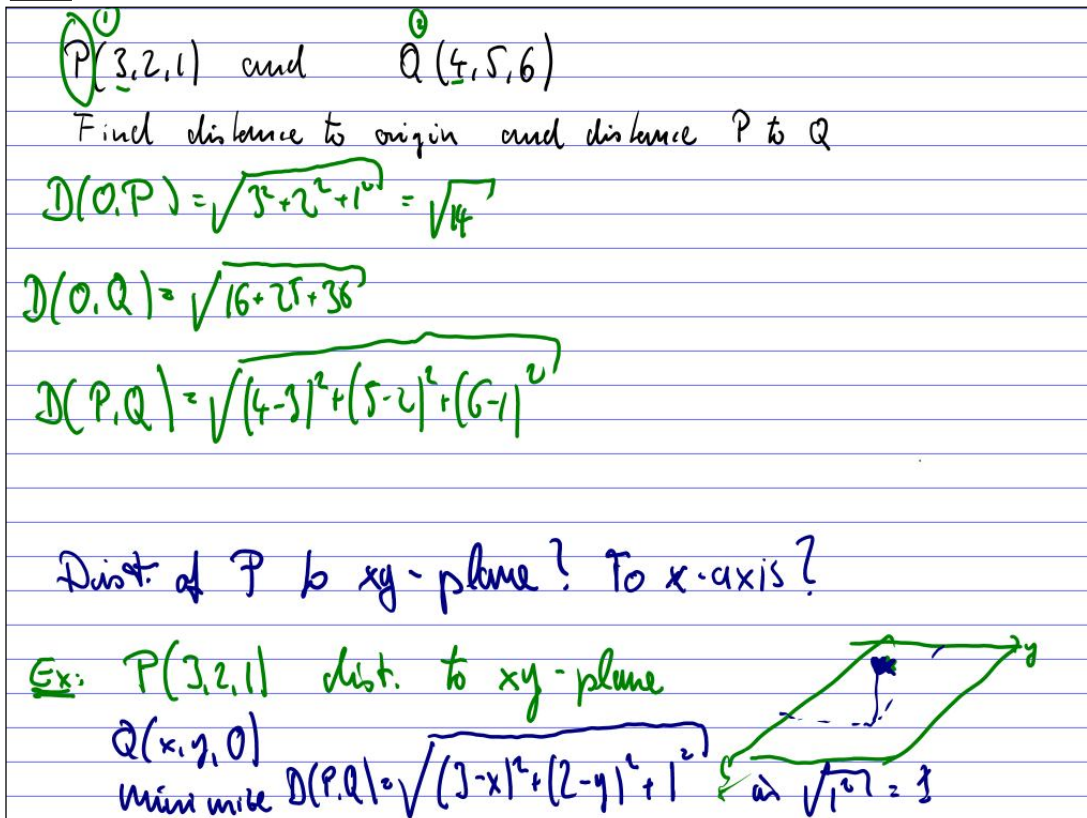 ① ②
P(3,2,1) and Q(4,5,6)
Find distance to origin and distance P to Q
D(O,P) = √(3²+2²+1²) = √14
D(O,Q) = √(16+25+36)
D(P,Q) = √((4-3)²+(5-2)²+(6-1)²)
Dist. of P to xy-plane? To x-axis?
Ex: P(3,2,1) dist. to xy-plane
y
Q(x,y,0)
minimize D(P,Q) = √((3-x)²+(2-y)²+1²) √(1²) = 1